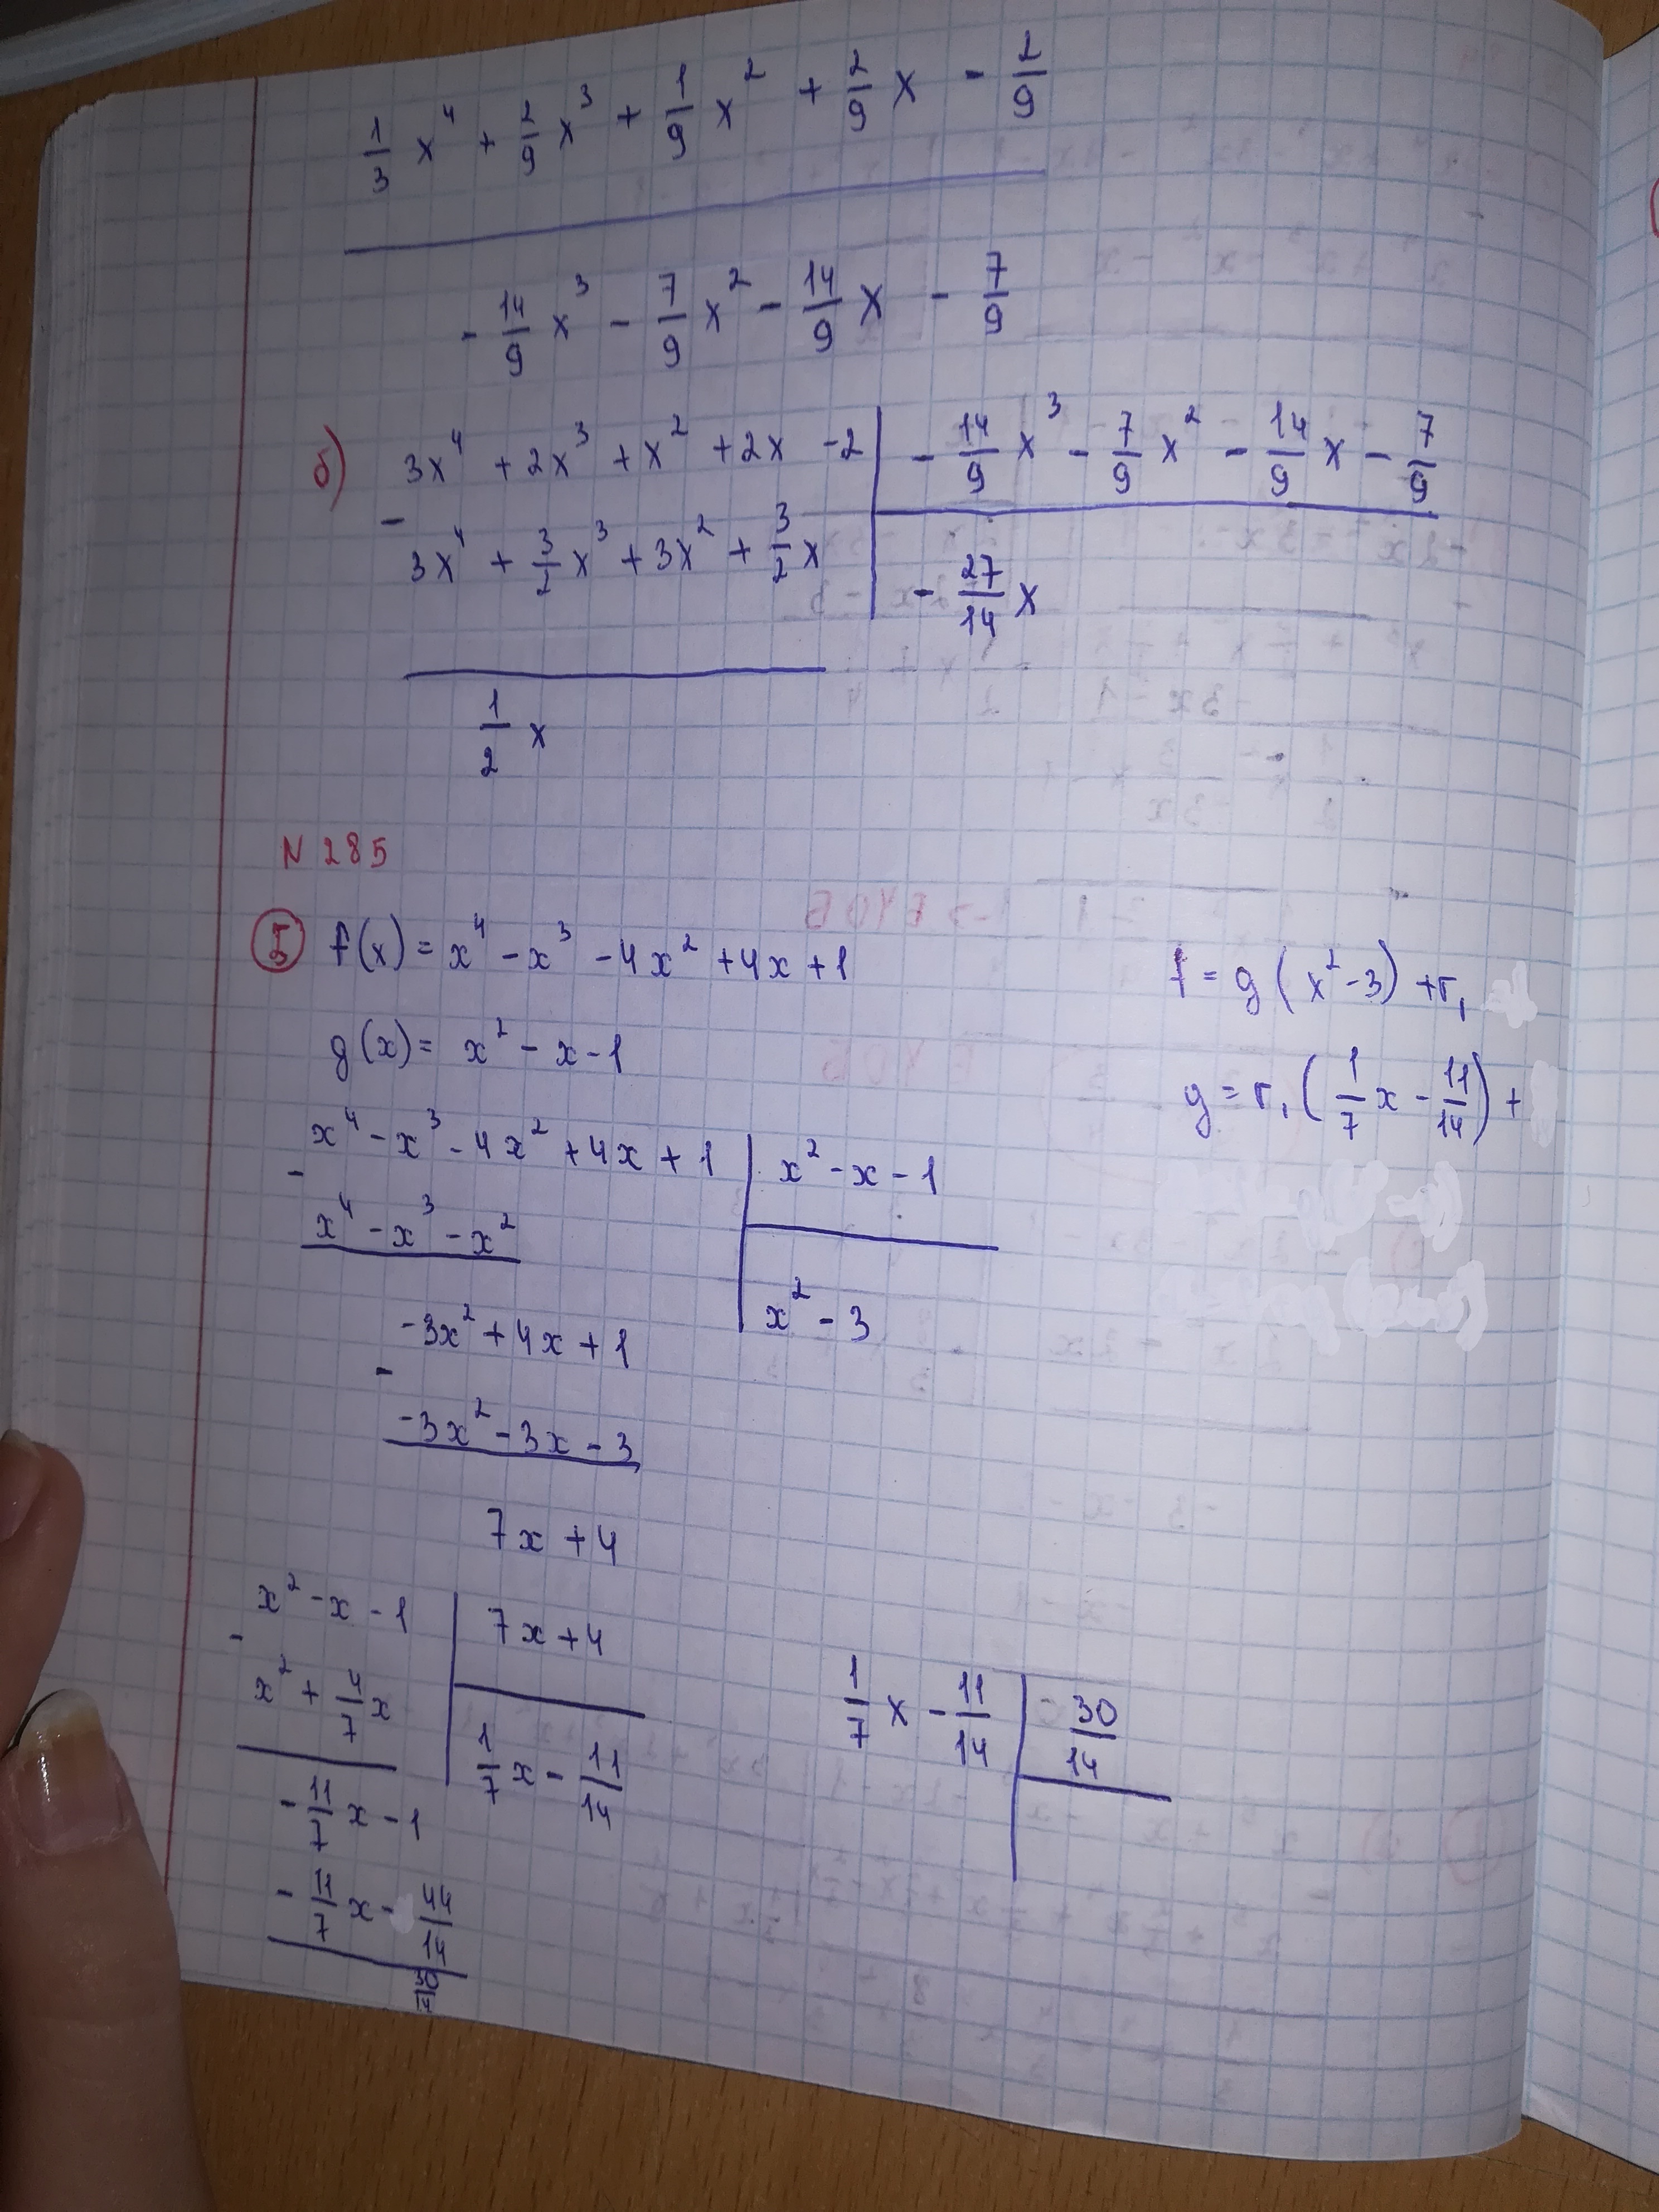 1/3 x⁴ + 2/9 x³ + 1/9 x² + 2/9 x - 2/9
- 14/9 x³ - 7/9 x² - 14/9 x - 7/9
б) 3x⁴ + 2x³ + x² + 2x - 2 | - 14/9 x³ - 7/9 x² - 14/9 x - 7/9
- 3x⁴ + 3/2 x³ + 3x² + 3/2 x | - 27/14 x
1/2 x
N 285
I f(x) = x⁴ - x³ - 4x² + 4x + 1
f = g (x² - 3) + r₁
g(x) = x² - x - 1
g = r₁ (1/7 x - 11/14) +
x⁴ - x³ - 4x² + 4x + 1 | x² - x - 1
- x⁴ - x³ - x² | x² - 3
-3x² + 4x + 1
- -3x² - 3x - 3
7x + 4
x² - x - 1 | 7x + 4
- x² + 4/7 x | 1/7 x - 11/14
- 11/7 x - 1
- 11/7 x - 44/14
30/14
1/7 x - 11/14 | 30/14